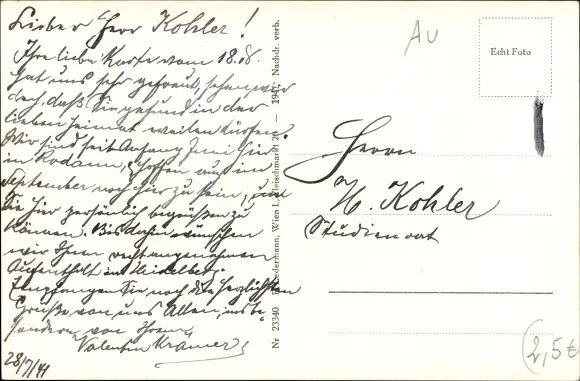 Lieber Herr Kohler!
Ihre liebe Karte vom 18.
hat uns sehr gefreut, sehen wir
doch daß Sie gesund in der
lieben Heimat weilen dürfen.
Wir sind seit Anfang Juni hier
in Rodaun, hoffen auch im
September noch hier zu sein, und
Sie hier persönlich begrüßen zu
können. Bis dahin wünschen
wir Ihnen recht angenehmen
Aufenthalt in Heidelberg.
Empfangen Sie noch die herzlichsten
Grüße von uns Allen, insbe
sondere von Ihrem
Valentin Kramer
28/7/41
Nr 23340 Wien I., Fleischmarkt 20 — 1941. Nachdr. verb.
Au
Echt Foto
Herrn
H. Kohler
Studienrat
2,5€